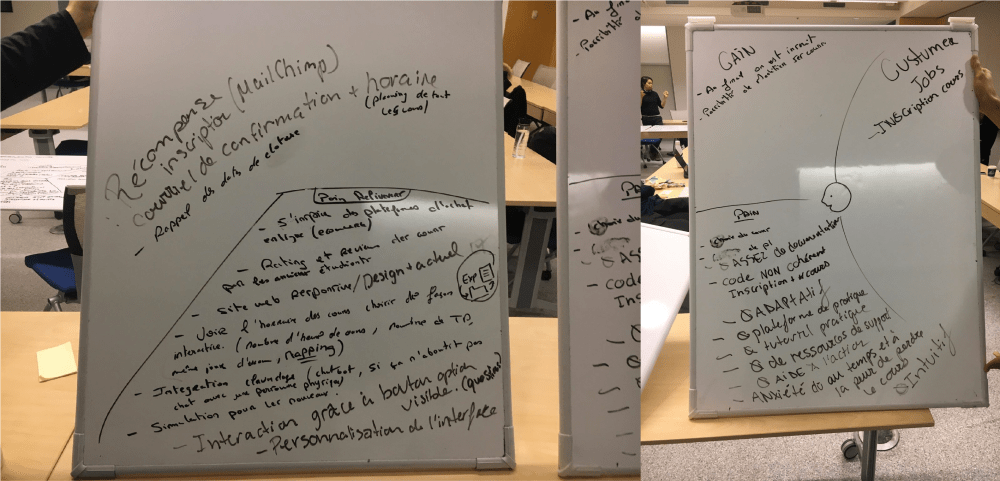 Récompense (MailChimp)
inscription
courriel de confirmation + horaire
(planning de tout
les cours)
- Rappel des dates de cloture
Pain Reliever
- S'inspirer des plateformes d'achat
en ligne (
- Rating et Review des cours
par les anciens étudiants
- Site web Responsive / Design + actuel
Exp
- Voir l'horaire des cours choisir de façon
interactive. (Nombre d'heure de cours, nombre de TP,
même jour d'examen, mapping)
- Integration clavardage (chatbot, si ça n'aboutit pas
chat avec une personne physique)
- Simulation pour les nouveaux.
- Interaction grâce à bouton option
visible. (question)
- Personnalisation de l'interface
- Au final
- Possibilité
PA
- code
Insc
GAIN
- Au final on est inscrit
- Possibilité de
Custumer
Jobs
- INScription cours
PAIN
- ASSEZ de documentation
- code NON cohérent
Inscription + cours
- ∅ ADAPTAtif
- ∅ plateforme de pratique
- ∅ tutoriel pratique
- ∅ de ressources de support
- ∅ AIDE à l'action
- ANxiété du au temps et à
la peur de perdre
le cours
∅ Intuitif